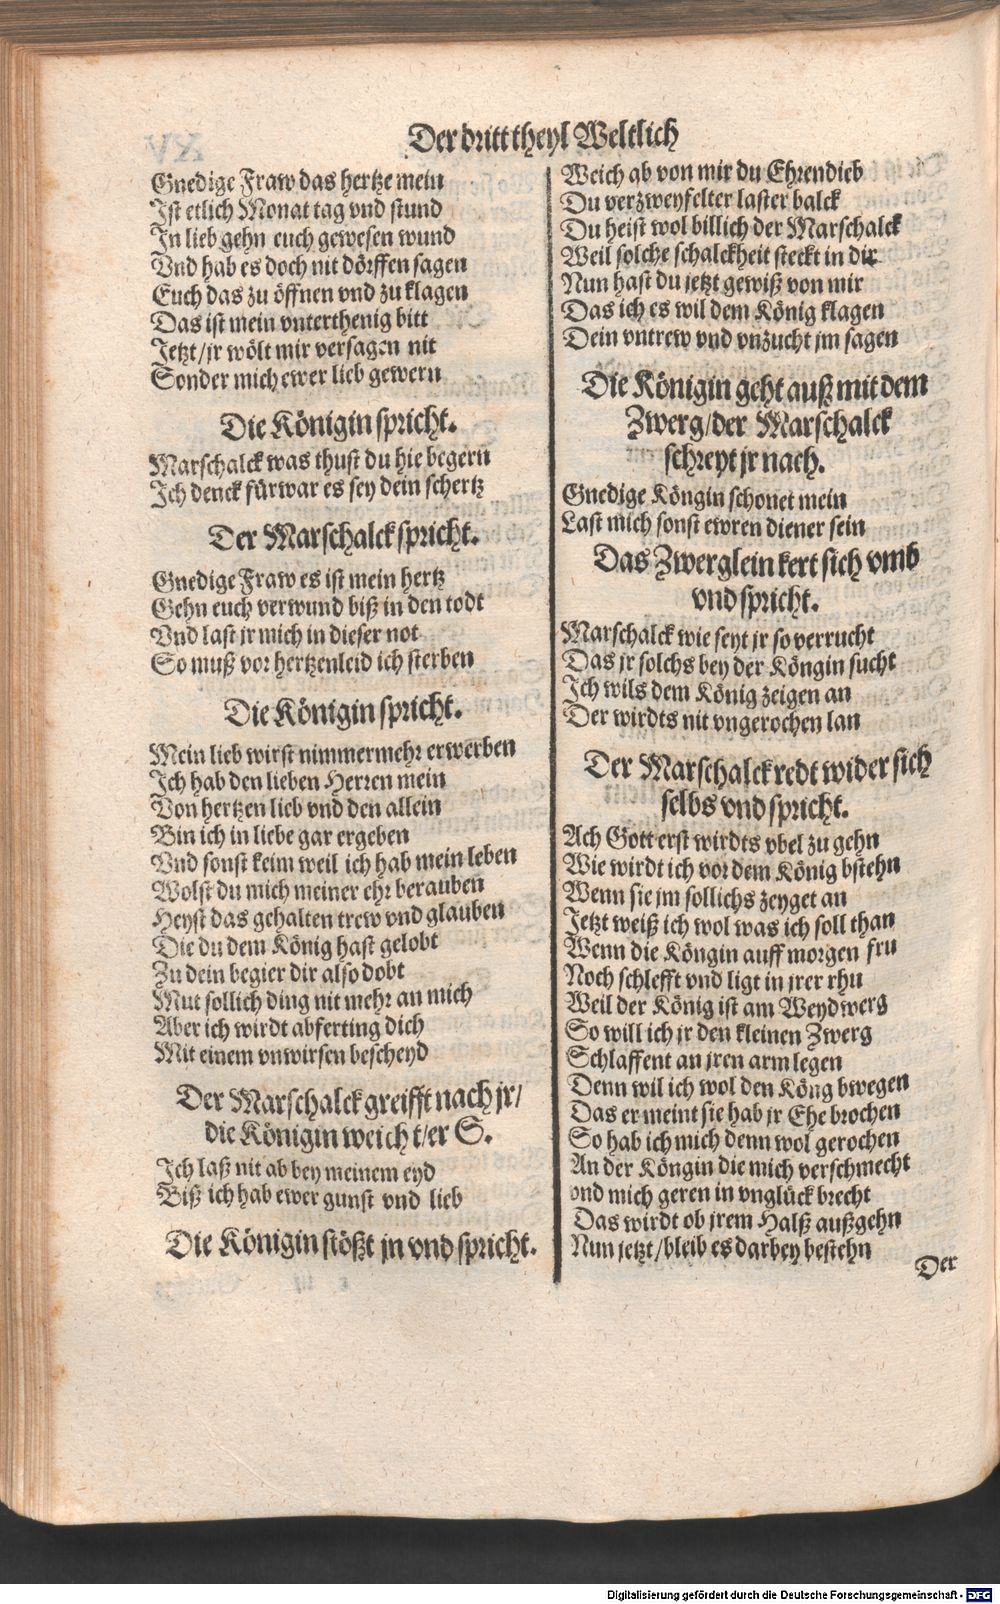 Der dritt theyl Weltlich
Gnedige Fraw das hertze mein
Ist etlich Monat tag vnd stund
In lieb gehn euch gewesen wund
Vnd hab es doch nit dörffen sagen
Euch das zu öffnen vnd zu klagen
Das ist mein vnterthenig bitt
Jetzt/jr wölt mir versagen nit
Sonder mich ewer lieb gewern
Die Königin spricht.
Marschalck was thust du hie begern
Ich denck fürwar es sey dein schertz
Der Marschalck spricht.
Gnedige Fraw es ist mein hertz
Gehn euch verwund biß in den todt
Vnd last jr mich in dieser not
So muß vor hertzenleid ich sterben
Die Königin spricht.
Mein lieb wirst nimmermehr erwerben
Ich hab den lieben Herren mein
Von hertzen lieb vnd den allein
Bin ich in liebe gar ergeben
Vnd sonst keim weil ich hab mein leben
Wolst du mich meiner ehr berauben
Heyst das gehalten trew vnd glauben
Die du dem König hast gelobt
Zu dein begier dir also dobt
Mut sollich ding nit mehr an mich
Aber ich wirdt abferting dich
Mit einem vnwirsen bescheyd
Der Marschalck greifft nach jr/
die Königin weicht/er S.
Ich laß nit ab bey meinem eyd
Biß ich hab ewer gunst vnd lieb
Die Königin stößt jn vnd spricht.
Weich ab von mir du Ehrendieb
Du verzweyfelter laster balck
Du heist wol billich der Marschalck
Weil solche schalckheit steckt in dir
Nun hast du jetzt gewiß von mir
Das ich es wil dem König klagen
Dein vntrew vnd vnzucht jm sagen
Die Königin geht auß mit dem
Zwerg/der Marschalck
schreyt jr nach.
Gnedige Köngin schonet mein
Last mich sonst ewren diener sein
Das Zwerglein kert sich vmb
vnd spricht.
Marschalck wie seyt jr so verrucht
Das jr solchs bey der Köngin sucht
Ich wils dem König zeigen an
Der wirdts nit vngerochen lan
Der Marschalck redt wider sich
selbs vnd spricht.
Ach Gott erst wirdts vbel zu gehn
Wie wirdt ich vor dem König bstehn
Wenn sie jm sollichs zeyget an
Jetzt weiß ich wol was ich soll than
Wenn die Köngin auff morgen fru
Noch schlefft vnd ligt in jrer rhu
Weil der König ist am Weydwerg
So will ich jr den kleinen Zwerg
Schlaffent an jren arm legen
Denn wil ich wol den Köng bwegen
Das er meint sie hab jr Ehe brochen
So hab ich mich denn wol gerochen
An der Köngin die mich verschmecht
vnd mich geren in vnglück brecht
Das wirdt ob jrem Halß außgehn
Nun jetzt/bleib es darbey bestehn
Der
Digitalisierung gefördert durch die Deutsche Forschungsgemeinschaft - DFG